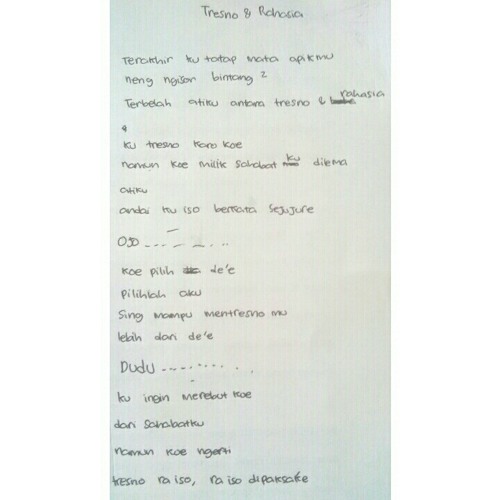 Tresno & Rahasia
Terakhir ku tatap mata apikmu
neng ngisor bintang 2
Terbelah atiku antara tresno & rahasia
&
ku tresno karo koe
namun koe milik sahabat ku dilema
atiku
andai ku iso berkata sejujure
OJO ...........
koe pilih de'e
pilihlah aku
Sing mampu mentresno mu
lebih dari de'e
DUDU ............
ku ingin merebut koe
dari sahabatku
namun koe ngerti
tresno ra iso, ra iso dipaksake